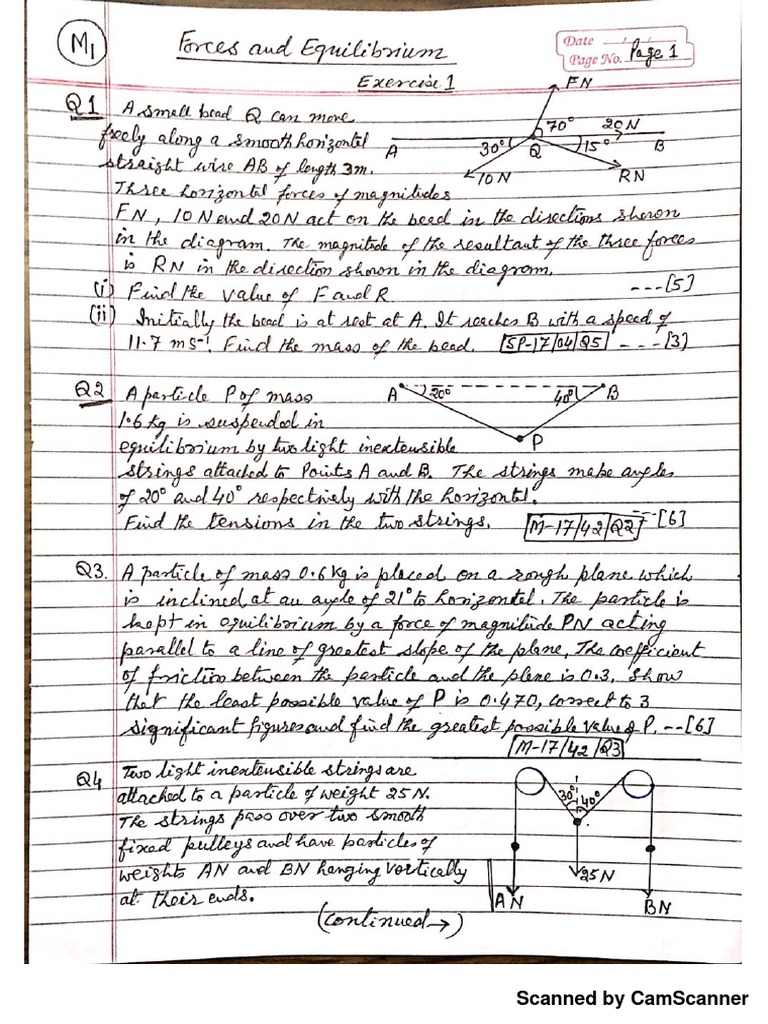 M1
Forces and Equilibrium
Date
Page No. Page 1
Exercise 1
Q1 A small bead Q can move
freely along a smooth horizontal
straight wire AB of length 3m.
Three horizontal forces of magnitudes
FN, 10 N and 20N act on the bead in the directions shown
in the diagram. The magnitude of the resultant of the three forces
is RN in the direction shown in the diagram.
FN
70°
20N
A
30°
Q
15°
B
10 N
RN
(i) Find the value of F and R ---[5]
(ii) Initially the bead is at rest at A. It reaches B with a speed of
11.7 ms⁻¹. Find the mass of the bead. SP-17/04/Q5 ---[3]
Q2 A particle P of mass
1.6 kg is suspended in
equilibrium by two light inextensible
strings attached to Points A and B. The strings make angles
of 20° and 40° respectively with the horizontal.
Find the tensions in the two strings. M-17/42/Q2 --[6]
A 20° 40° B
P
Q3. A particle of mass 0.6 kg is placed on a rough plane which
is inclined at an angle of 21° to horizontal. The particle is
kept in equilibrium by a force of magnitude PN acting
parallel to a line of greatest slope of the plane. The coefficient
of friction between the particle and the plane is 0.3. Show
that the least possible value of P is 0.470, correct to 3
significant figures and find the greatest possible value of P. --[6]
M-17/42/Q3
Q4 Two light inextensible strings are
attached to a particle of weight 25 N.
The strings pass over two smooth
fixed pulleys and have particles of
weights AN and BN hanging vertically
at their ends.
30° 40°
25N
AN
BN
(continued→)
Scanned by CamScanner